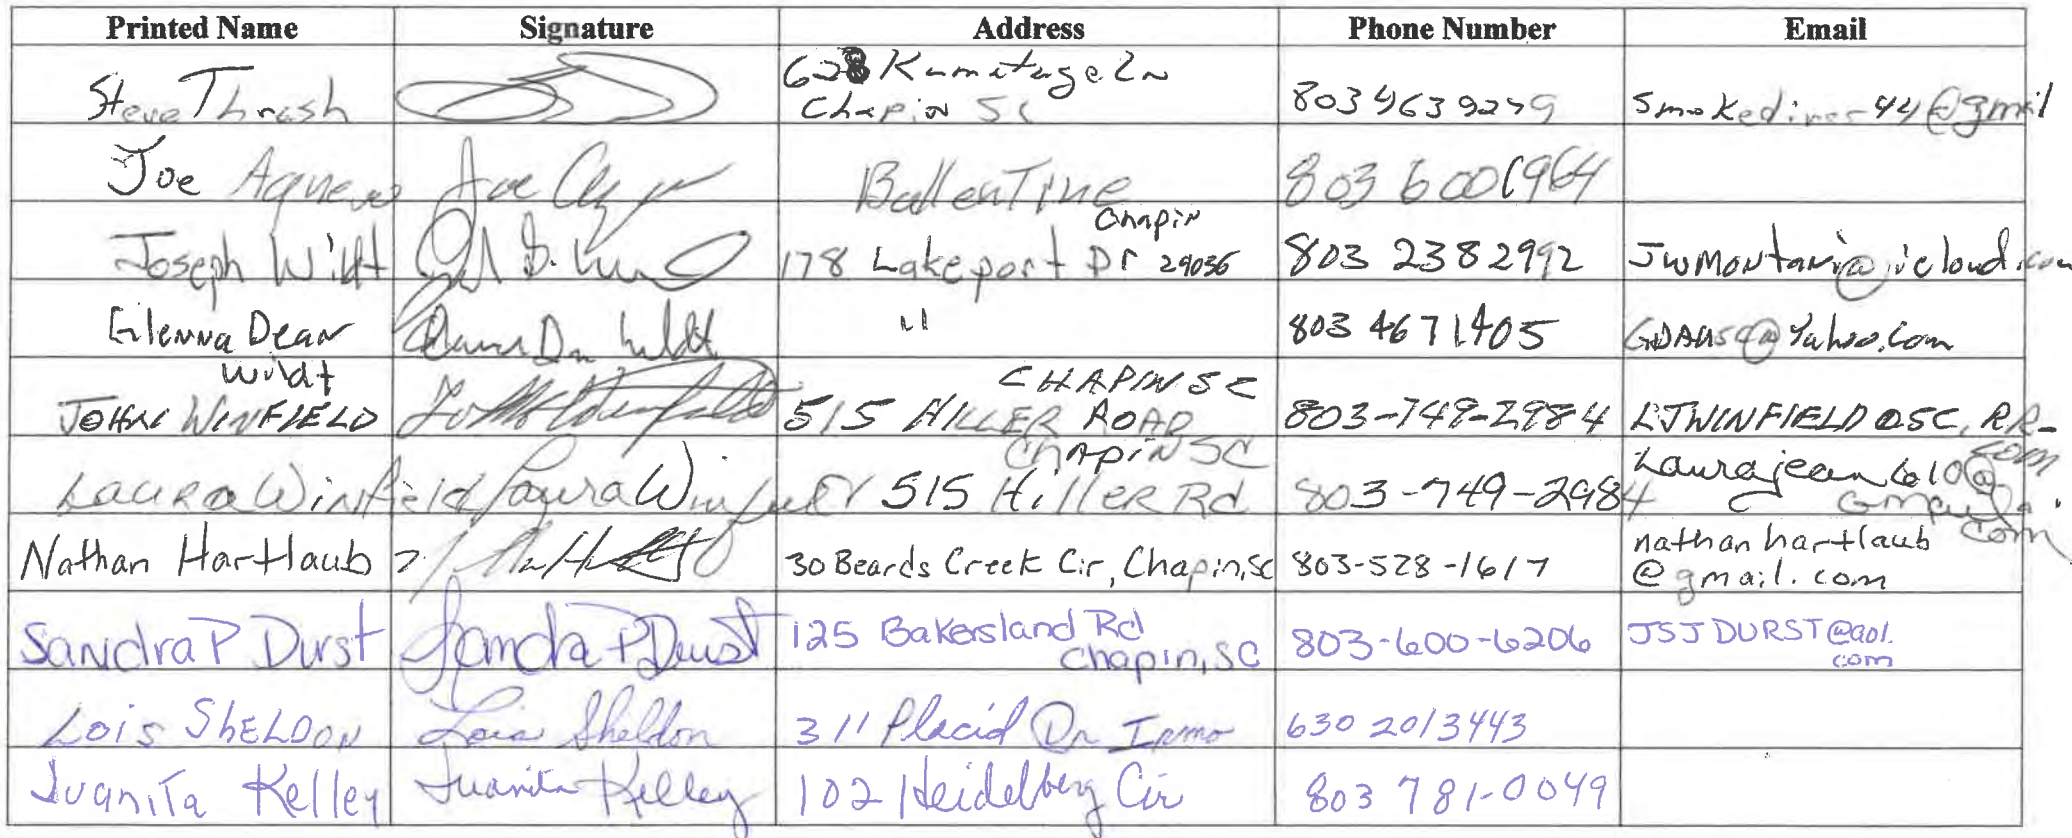 Printed Name Signature Address Phone Number Email
Steve Thrash 628 Ln
Chapin SC 803 463 9279 @gmail
Joe Agnew Joe Ballentine 803 600 1964
Chapin
Joseph Wildt 178 Lakeport Dr 29036 803 238 2992 @icloud.com
Glenna Dean
Wildt " 803 467 1405 @Yahoo.com
CHAPIN SC
JOHN WINFIELD 515 HILLER ROAD 803-749-2984 LJWINFIELD@SC.RR.
com
Chapin SC
Laura Winfield Laura Winfield 515 Hiller Rd 803-749-2984 Laurajean6610@
Gmail.
com
Nathan Hartlaub 30 Beards Creek Cir, Chapin, SC 803-528-1617 nathanhartlaub
@gmail.com
Sandra P Durst Sandra P Durst 125 Bakersland Rd
Chapin, SC 803-600-6206 JSJDURST@aol.
com
Lois SheLDON Lois Sheldon 311 Placid Dr Irmo 630 201 3443
Juanita Kelley Juanita Kelley 102 Heidelberg Cir 803 781-0049